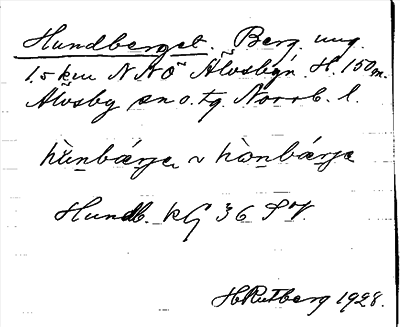 Hundberget. Berg. ung.
1.5 km NNÖ Älvsbyn. H. 150 m.
Älvsby sn o. tg. Norrb. l.
hùnbárjə ~ hònbárjə
Hundb. kG 36 SV.
H Rutberg 1928.